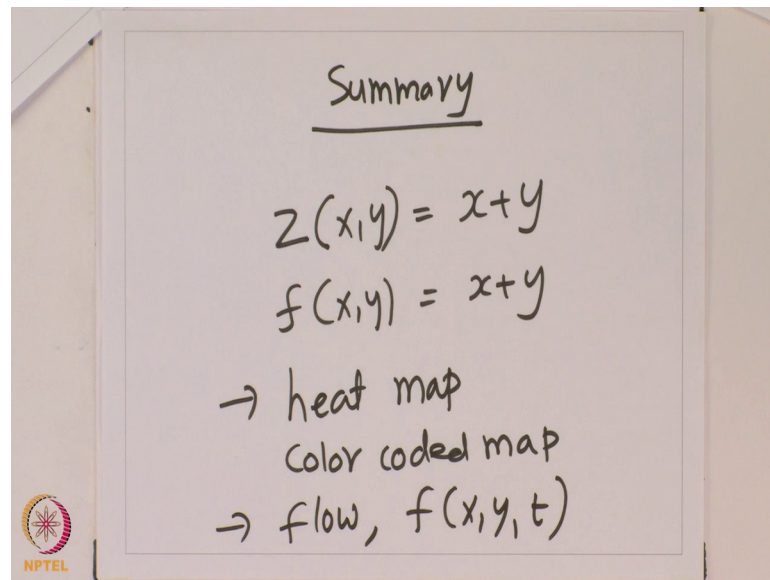 Summary
Z(x,y) = x+y
f(x,y) = x+y
→ heat map
color coded map
→ flow, f(x,y,t)
NPTEL